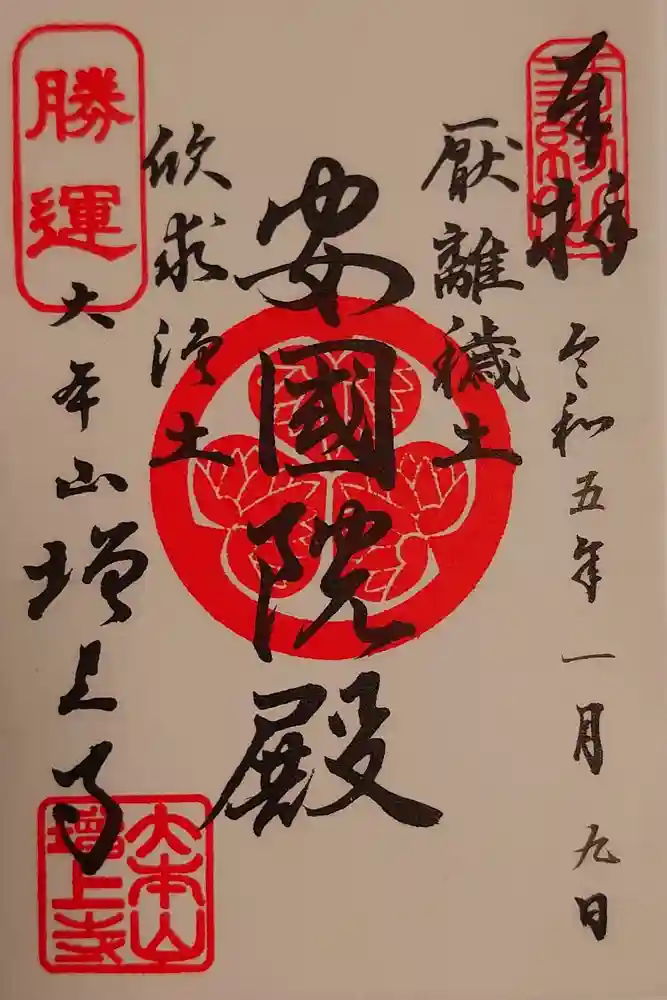 奉拝
令和五年一月九日
厭離穢土
安國院殿
欣求浄土
勝運
大本山増上寺
大本山
増上寺